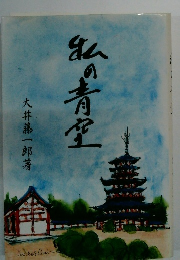 私の青空
大井藤一郎著